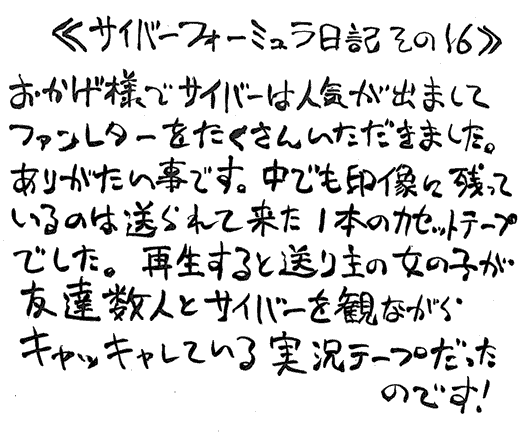 ≪サイバーフォーミュラ日記その16≫
おかげ様でサイバーは人気が出まして
ファンレターをたくさんいただきました。
ありがたい事です。中でも印像に残って
いるのは送られて来た1本のカセットテープ
でした。再生すると送り主の女の子が
友達数人とサイバーを観ながら
キャッキャしている実況テープだった
のです!